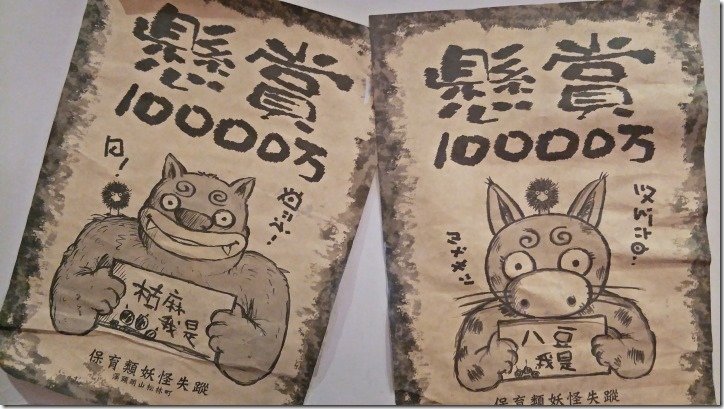 懸賞
10000万
枯麻
我是
保育類妖怪失蹤
溪頭明山松林町
懸賞
10000万
八豆
我是
保育類妖怪失蹤